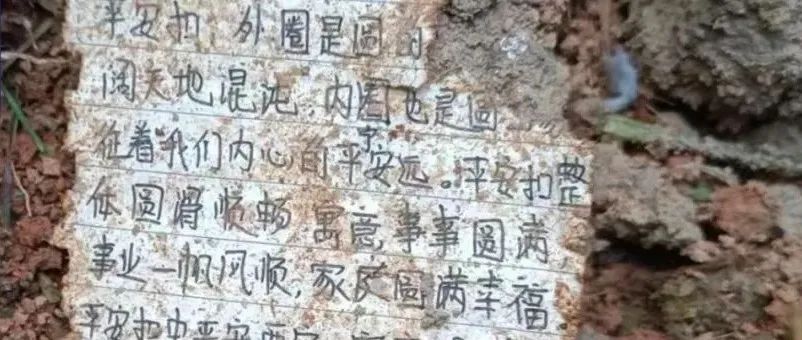 平安扣,外圈是圆的
阔天地混沌,内圈也是圆
征着我们内心的平宁安远。平安扣整
体圆滑顺畅 寓意,事事圆满
事业一帆风顺,家庭圆满幸福
平安扣也